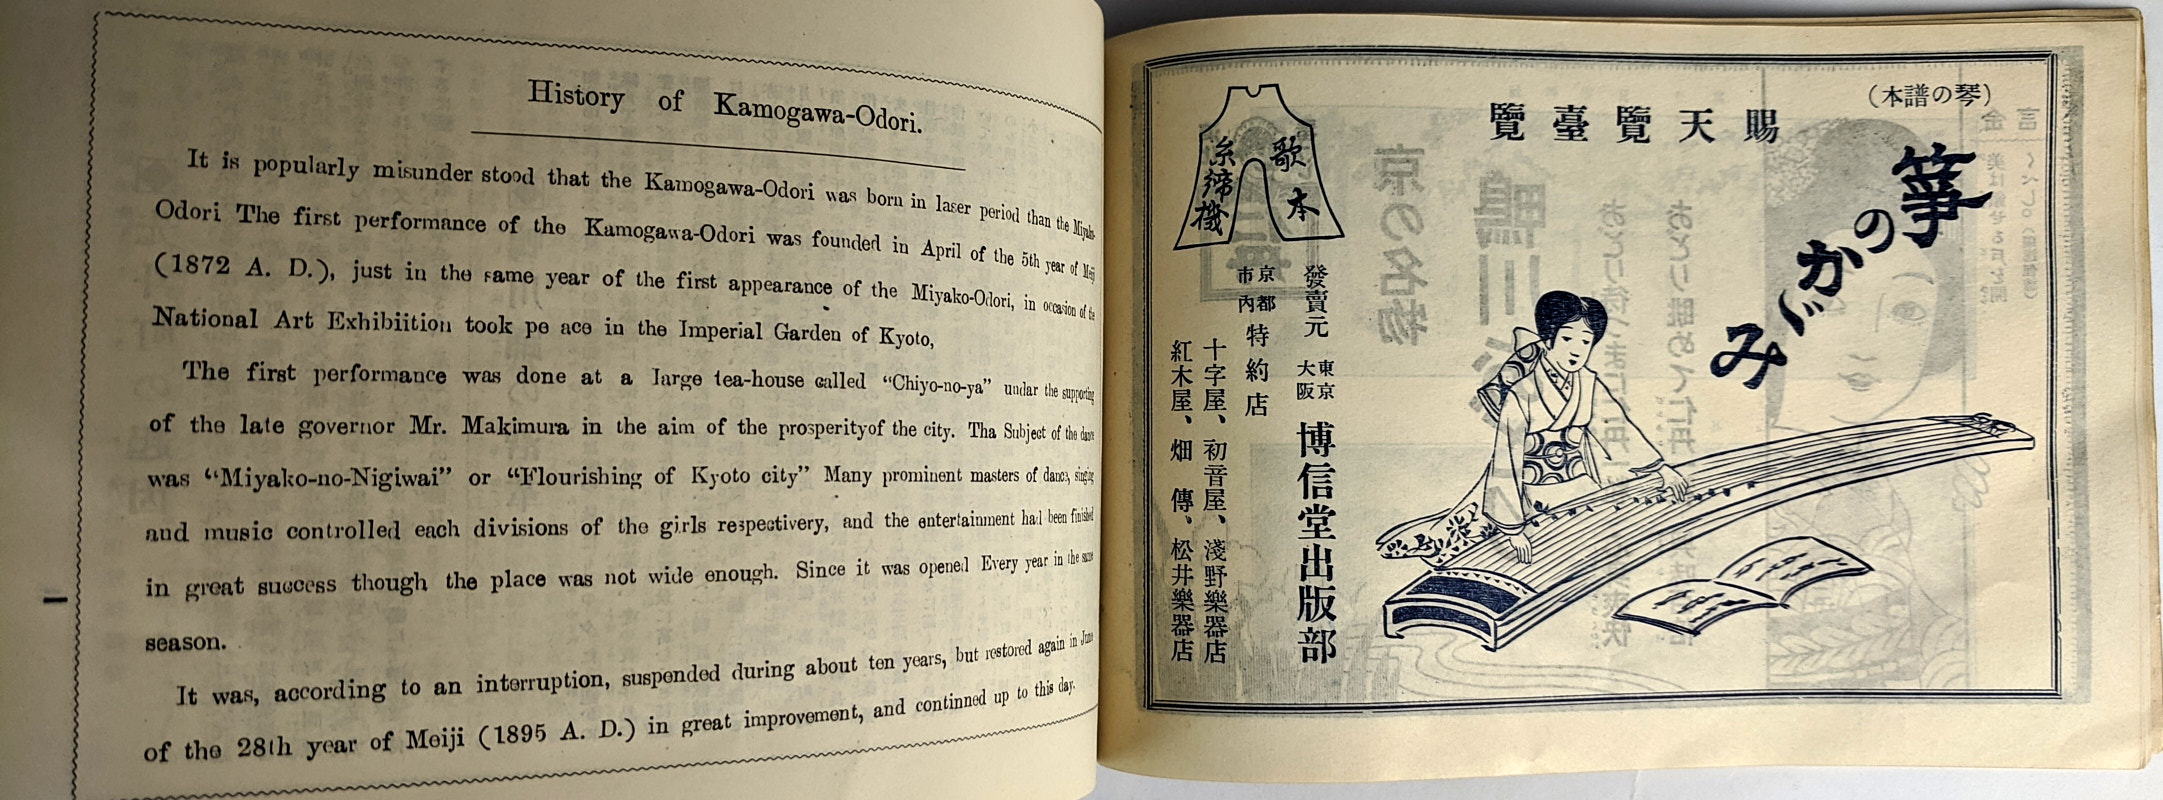 History of Kamogawa-Odori.
It is popularly misunder stood that the Kamogawa-Odori was born in laser period than the Miyako-
Odori The first performance of the Kamogawa-Odori was founded in April of the 5th year of Meiji
(1872 A. D.), just in the same year of the first appearance of the Miyako-Odori, in occasion of the
National Art Exhibiition took pe ace in the Imperial Garden of Kyoto,
The first performance was done at a large tea-house called “Chiyo-no-ya” undar the supporting
of the late governor Mr. Makimura in the aim of the prosperityof the city. Tha Subject of the dance
was “Miyako-no-Nigiwai” or “Flourishing of Kyoto city” Many prominent masters of dance, singing
and music controlled each divisions of the girls respectivery, and the entertainment had been finished
in great success though the place was not wide enough. Since it was opened Every year in the same
season.
It was, according to an interruption, suspended during about ten years, but restored again in June
of the 28th year of Meiji (1895 A. D.) in great improvement, and continned up to this day.
(琴の譜本)
箏のかゞみ
賜天覽臺覽
歌本
糸締機
發賣元 東京 大阪 博信堂出版部
京都市內 特約店
十字屋、初音屋、淺野樂器店
紅木屋、畑傳、松井樂器店